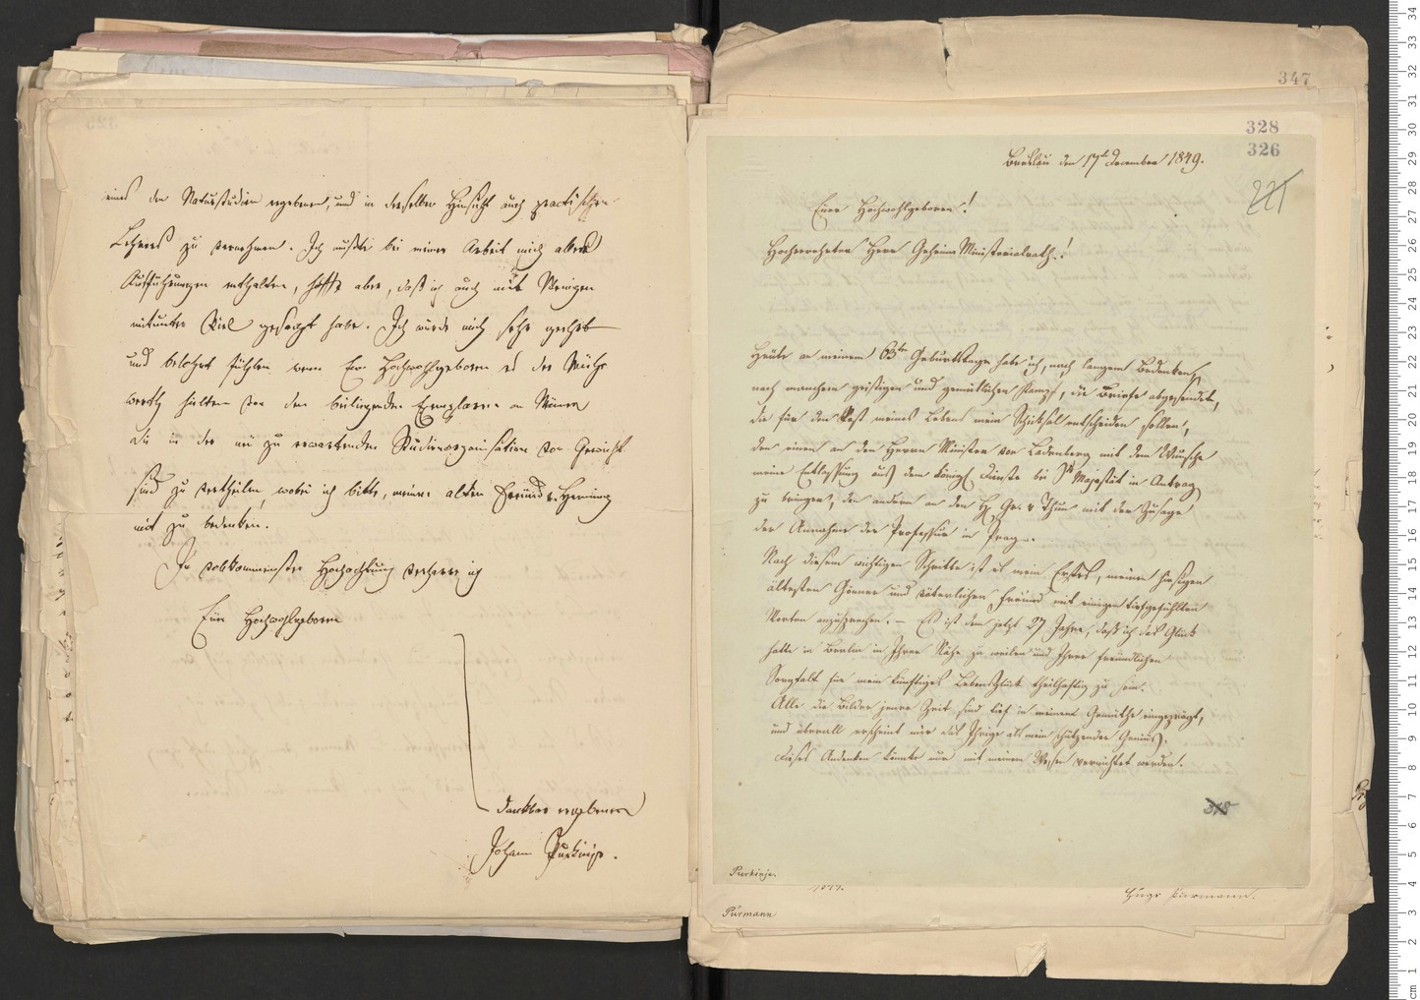 eines den Naturstudien ergebenen, und in derselben Hinsicht auch practischen
Lehrers zu vernehmen. Ich mußte bei meiner Arbeit mich aller
Ausführungen enthalten, hoffe aber, daß ich auch mit Wenigem
mitunter Viel gesagt habe. Ich würde mich sehr geehrt
und belohnt fühlen wenn Eur Hochwohlgeboren es der Mühe
werth halten von den beiliegenden Exemplaren an Männer
die in der neu zu erwartenden Studienorganisation von Gewicht
sind zu vertheilen, wobei ich bitte, meinen alten Freund v. Henning
mit zu bedenken.
In vollkommenster Hochachtung verharre ich
Euer Hochwohlgeboren
dankbar ergebener
Johann Purkinje.
347
328
326
Breslau den 17t December 1849.
221
Euer Hochwohlgeboren!
Hochverehrter Herr Geheimer Ministerialrath!
Heute an meinem 63ten Geburtstage habe ich, nach langem Bedenken,
nach manchem geistigen und gemütlichen Kampf, die Briefe abgesendet,
die für den Rest meines Lebens mein Schicksal entscheiden sollen,
den einen an den Herrn Minister von Ladenberg mit dem Wunsche
meine Entlassung aus dem königl. Dienste bei Sr Majestät in Antrag
zu bringen, den andern an den H. Gr. v Thun mit der Zusage
der Annahme der Professur in Prag.
Nach diesem wichtigen Schritte ist es mein Erstes, meinen hiesigen
ältesten Gönner und väterlichen Freund mit einigen tiefgefühlten
Worten anzusprechen. – Es ist dem jetzt 27 Jahre, daß ich das Glück
hatte in Berlin in Ihrer Nähe zu weilen und Ihrer freundlichen
Sorgfalt für mein künftiges Lebensglück theilhaftig zu sein.
Alle die Bilder jener Zeit sind tief in meinem Gemüthe eingeprägt,
und überall erscheint mir das Ihrige als mein schützender Genius.
Dieses Andenken könnte nur mit meinem Wesen vernichtet werden.
318
Purkinje.
Hugo Purmann.
Purmann